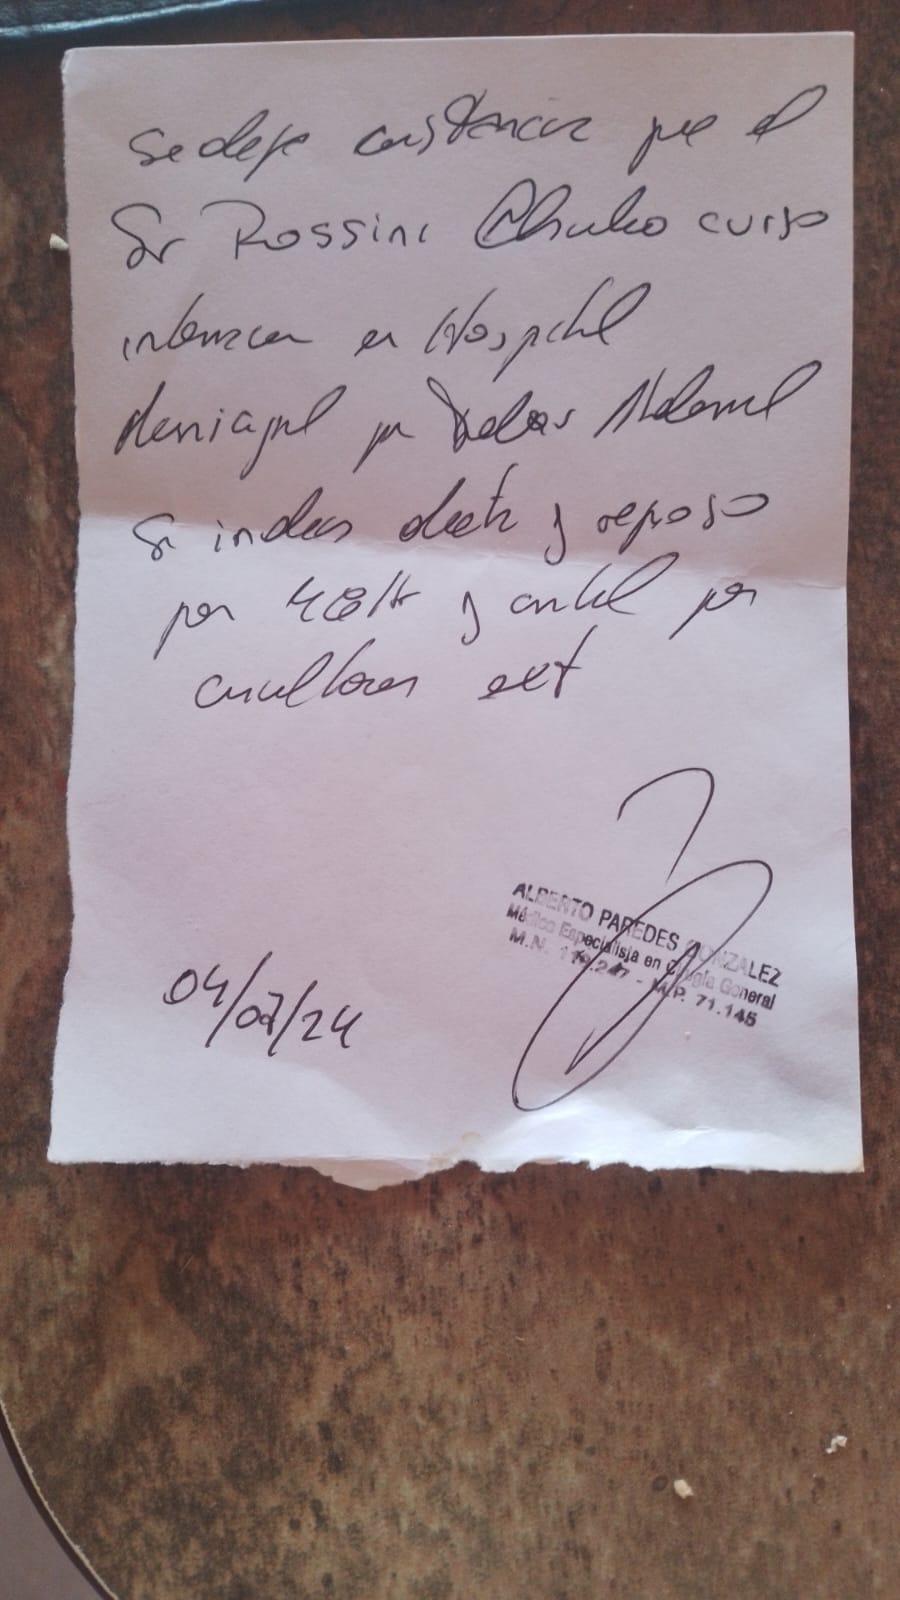 Se deja constancia que el
Sr Rossini curso
internacion en Hospital
Municipal por Dolor Abdominal
Se indica dieta y reposo
por 48 Hs y control por
consultorios ext
ALBERTO PAREDES GONZALEZ
Médico Especialista en Cirugía General
M.N. - M.P. 71.145
04/07/24